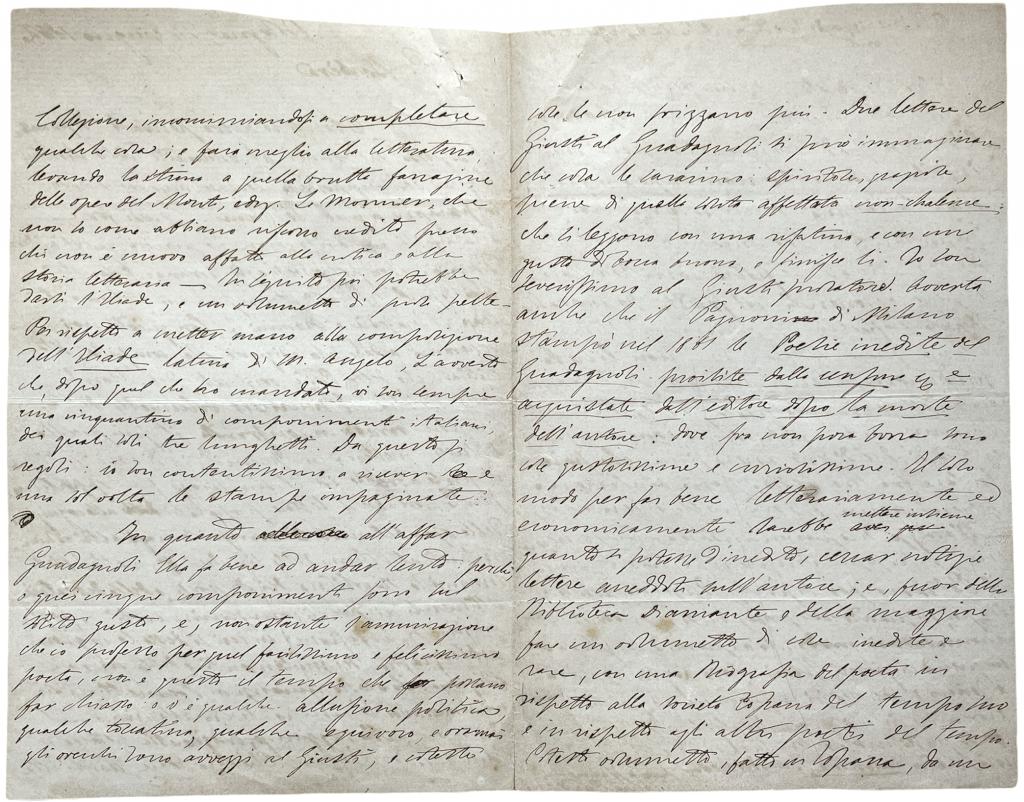 Collezione, incominciandosi a completare
qualche cosa; e farà meglio alla letteratura,
levando la stima a quella brutta farragine
delle opere del Monti, ediz. Le Monnier, che
non so come abbiano riscosso credito presso
chi non è nuovo affatto alla critica e alla
storia letteraria — In seguito poi potrebbe
darsi l'Iliade, e un volumetto di
Per rispetto a metter mano alla composizione
dell'Iliade latina di M. Angelo, L'avverto
che, dopo quel che ho mandato, vi son sempre
una cinquantina di componimenti italiani,
dei quali soli tre lunghetti. Da questo si
regoli: io son contentissimo a ricever
una sol volta le stampe impaginate.
In quanto all'affar
Guadagnoli Ella fa bene ad andar lento: perchè
e quei cinque componimenti sono sul
solito gusto, e, nonostante l'ammirazione
che io professo per quel facilissimo e felicissimo
poeta, non è questo il tempo che possano
far chiasso: v'è qualche allusione politica,
qualche toccatina, qualche equivoco, e oramai
gli orecchi sono avvezzi al Giusti, e coteste
cose le non frizzano più. Due lettere del
Giusti al Guadagnoli si può immaginare
che cosa le saranno: spiritose,
piene di quella solita affettata non-chalence:
che si leggono con una risatina, e con un
gusto di bocca buona, e finisce lì. Io son
severissimo al Giusti prosatore. Avverta
anche che il Pagnoni di Milano
stampò nel le Poesie inedite del
Guadagnoli proibite dalla censura e
acquistate dall'editore dopo la morte
dell'autore: dove fra non poca borra sono
cose gustosissime e curiosissime. Il solo
modo per far bene letterariamente ed
economicamente sarebbe mettere insieme
quanto si potesse d'inedito, cercar notizie
lettere aneddoti sull'autore; e, fuor della
Biblioteca Diamante o della maggiore
fare un volumetto di cose inedite e
rare, con una Biografia del poeta in
rispetto alla società toscana del tempo suo
e in rispetto agli altri poeti del tempo.
Cotesto volumetto, fatto in Toscana, da un